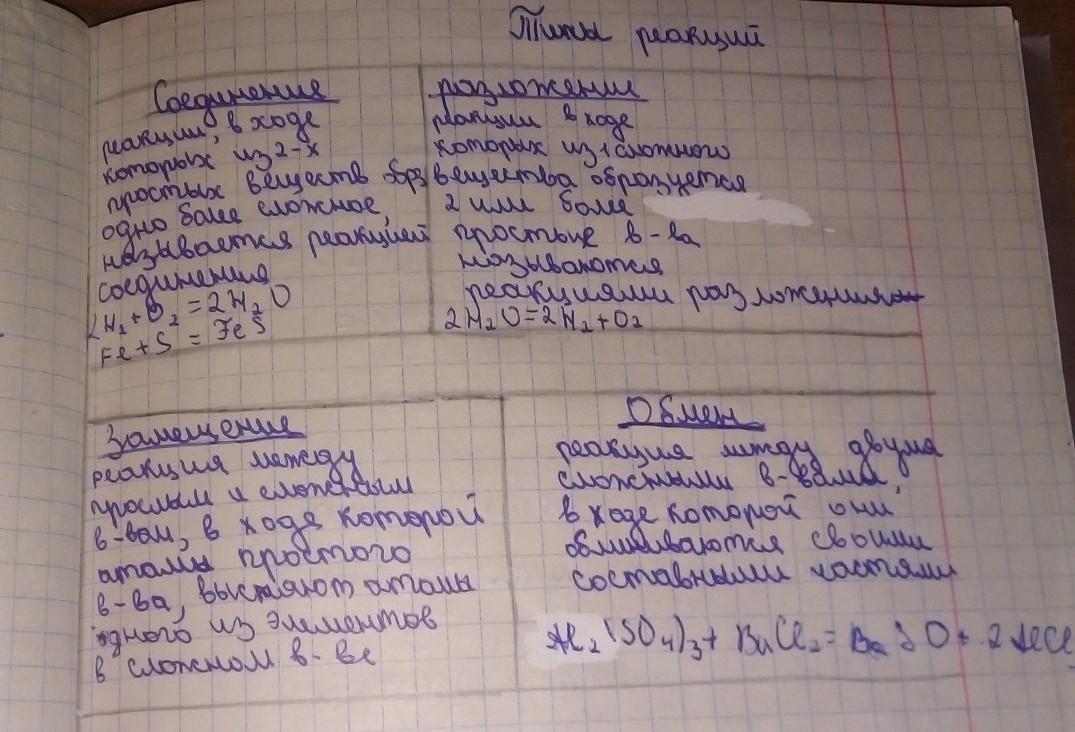 Типы реакций
Соединение
реакции, в ходе
которых из 2-х
простых веществ обрз
одно более сложное,
называется реакцией
соединения
2H₂+O₂=2H₂O
Fe+S=FeS
разложении
реакции в ходе
которых из 1 сложного
вещества образуется
2 или боле
простые в-ва
называются
реакциями разложения
2H₂O=2H₂+O₂
Замещение
реакция между
простым и сложным
в-вом, в ходе которой
атомы простого
в-ва, высняют атомы
одного из элементов
в сложном в-ве
Обмен
реакция между двумя
сложными в-вами,
в ходе которой они
обмниваются своими
составными частями
Al₂(SO₄)₃+BaCl₂=BaSO+2AlCl